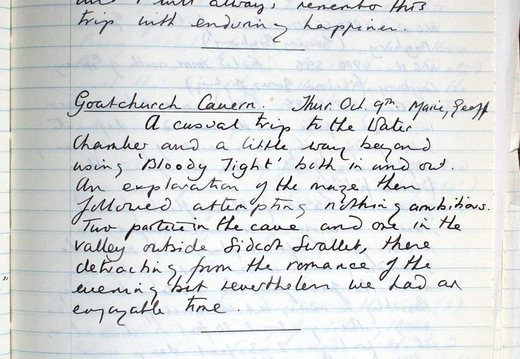 and I will always remember this
trip with enduring happiness.
Goatchurch Cavern. Thur. Oct. 9th. Marie, Geoff
A casual trip to the Water
Chamber and a little way beyond
using 'Bloody Tight' both in and out.
An exploration of the maze then
followed attempting nothing ambitious.
Two parties in the cave and one in the
valley outside Sidcot Swallet, there
detracting from the romance of the
evening but nevertheless we had an
enjoyable time.